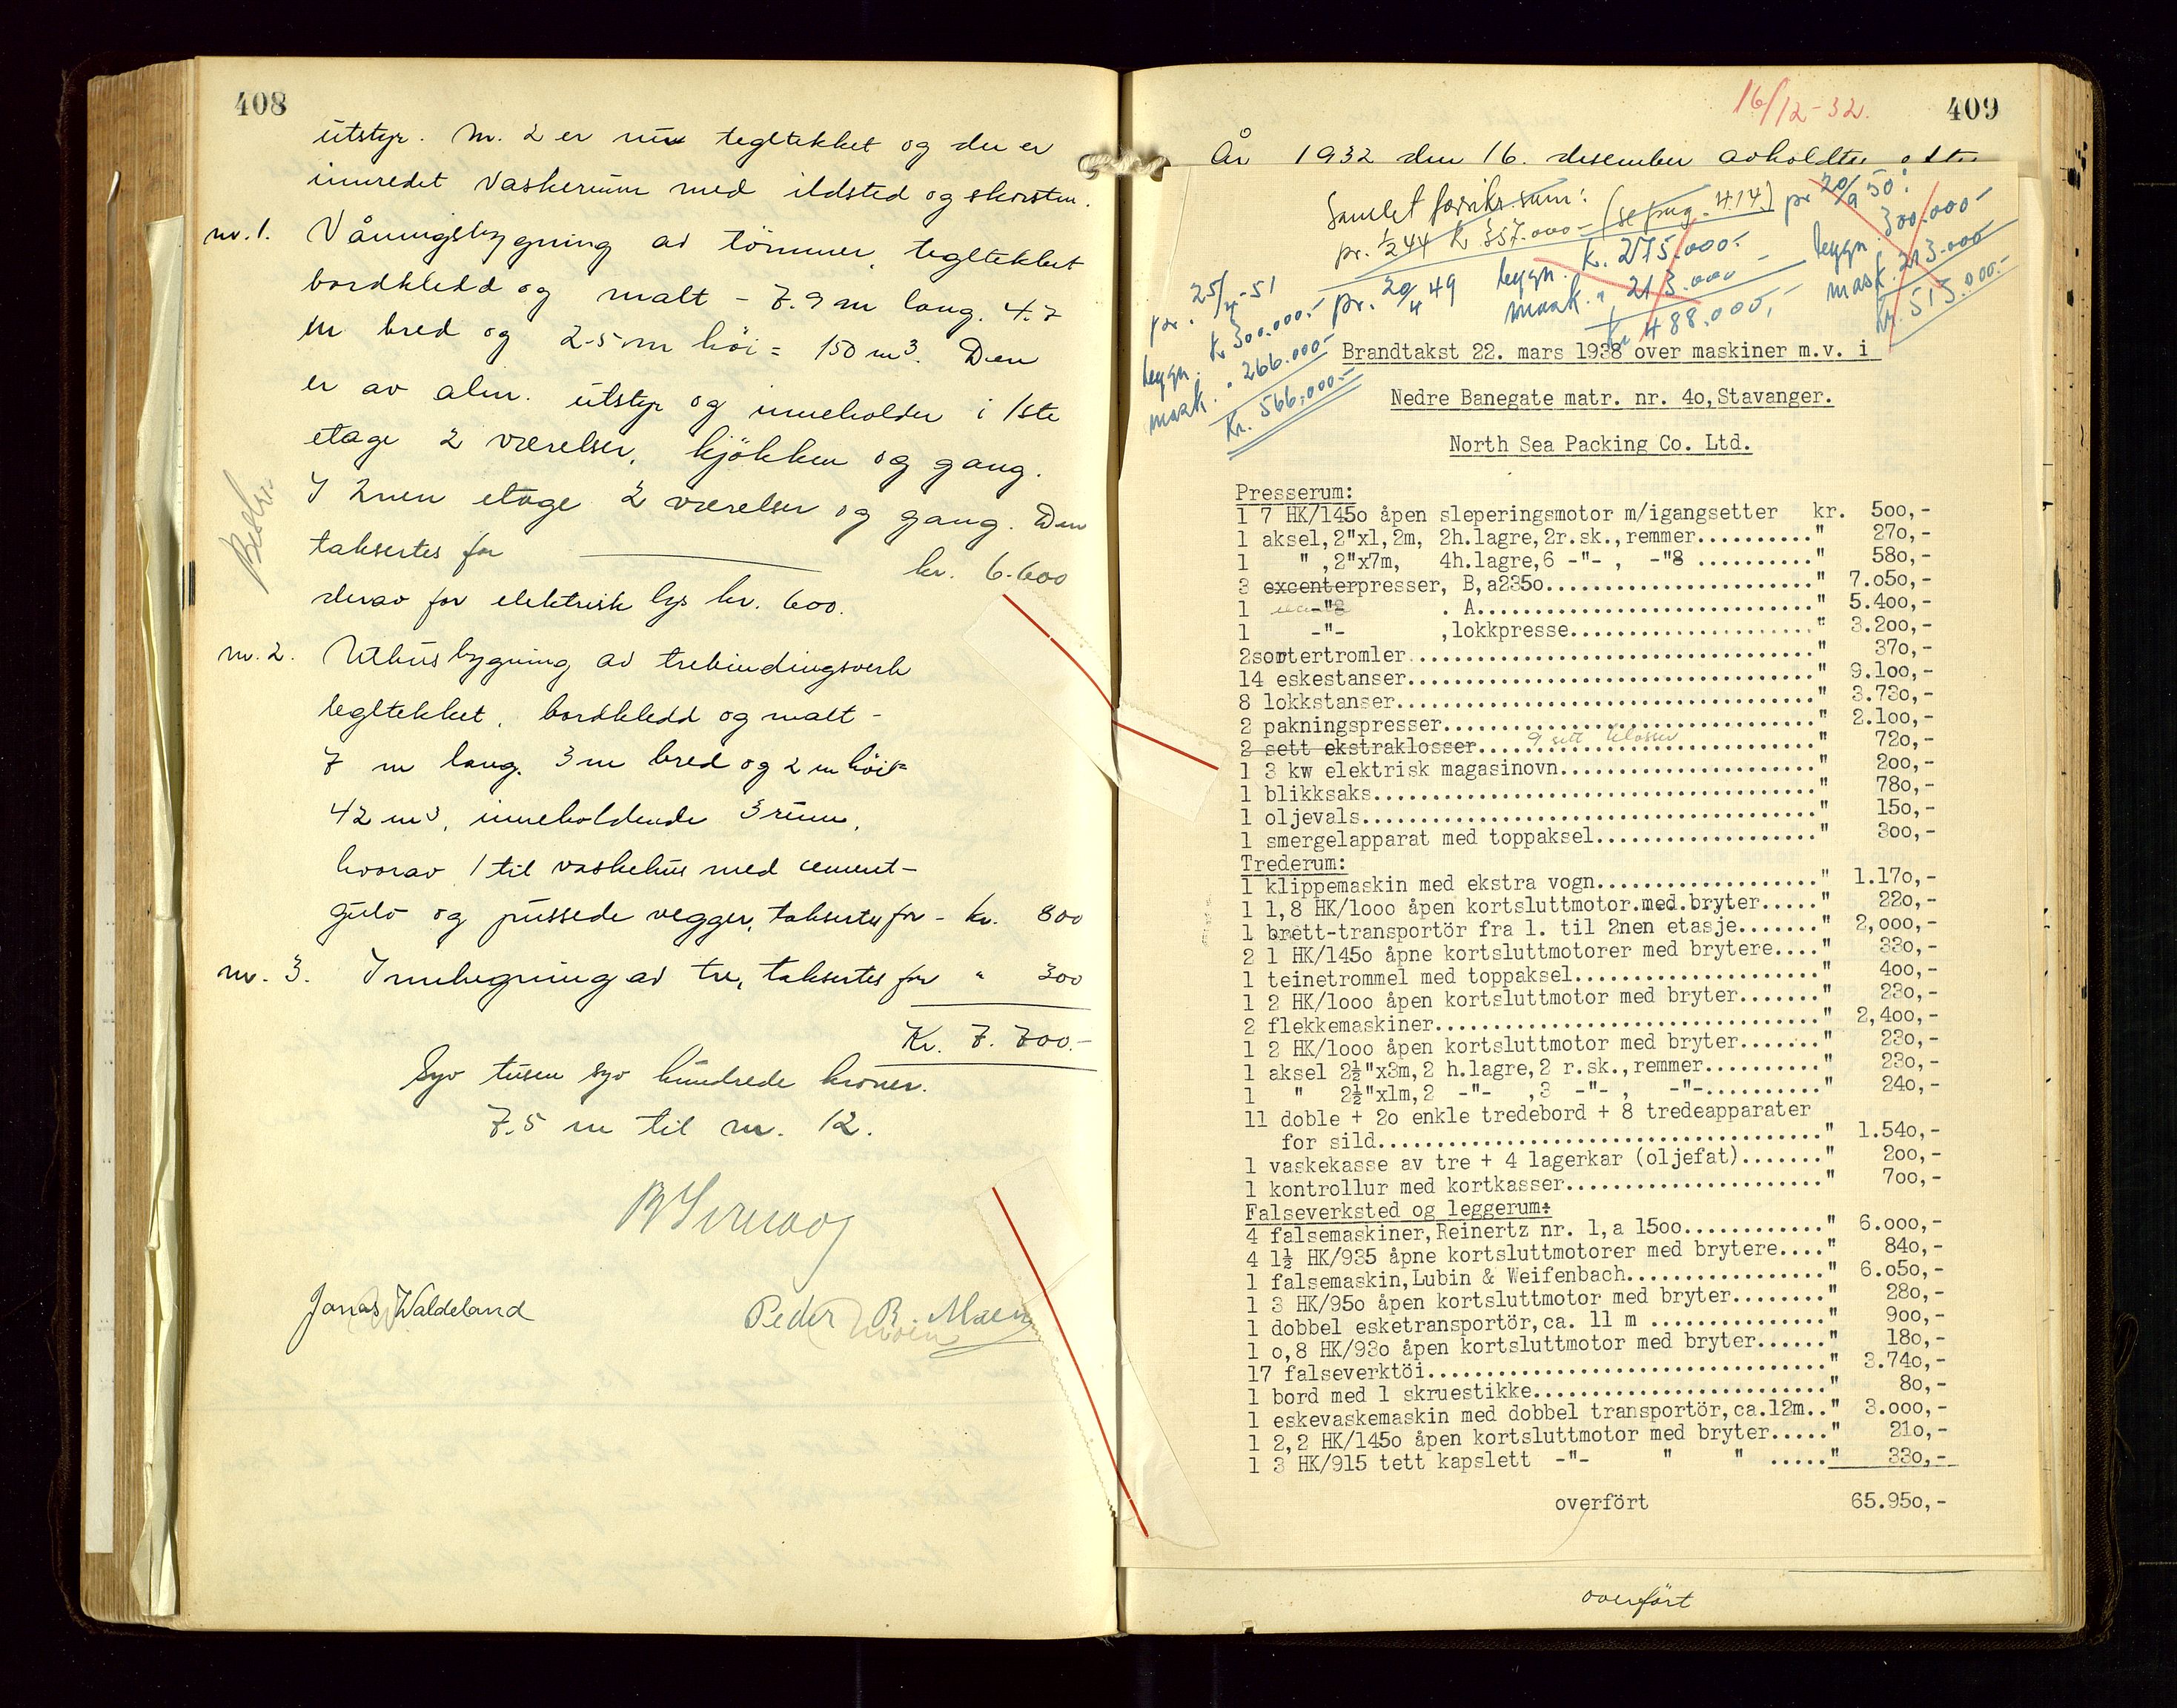 408
utstyr. Nr. 2 er nu tegltekket og der er
innredet vaskerum med ildsted og skorsten.
nr. 1. Våningsbygning av tömmer, tegltekket
bordkledd og malt - 7.9 m lang. 4.7
m bred og 2.5 m höi = 150 m³. Den
er av alm. utstyr og inneholder i 1ste
etage 2 værelser, kjökken og gang.
I 2nen etage 2 værelser og gang. Den
takseres for kr. 6.600
derav for elektrisk lys kr. 600.
nr. 2. Uthusbygning av trebindingsverk
tegltekket, bordkledd og malt -
7 m lang. 3 m bred og 2 m höi =
42 m³, inneholdende 3 rum,
hvorav 1 til vaskehus med cement-
gulv og pussede vegger, taksertes for - kr. 800
nr. 3. Innhegning av tre, taksertes for " 300
Kr. 7.700.-
Syv tusen syv hundrede kroner.
7.5 m til nr. 12.
Jonas Waldeland
Peder B. Moen
Moen
16/12-32.
409
År 1932 den 16. desember avholdtes
Samlet forsikr.sum: (se pag. 414)
pr. ½ 44 kr 357.000-
pr 20/9 50:
bygn. 300.000-
mask. 213.000
kr. 513.000.-
pr. 20/4 49 bygn. kr. 275.000-
mask. " 213.000
kr 488.000,-
pr. 25/4-51
bygn. kr 300.000.-
mask. " 266.000-
Kr. 566,000.-
Brandtakst 22. mars 1938 over maskiner m.v. i
Nedre Banegate matr. nr. 4o,Stavanger.
North Sea Packing Co. Ltd.
Presserum:
1 7 HK/145o åpen sleperingsmotor m/igangsetter kr. 5oo,-
1 aksel,2"xl,2m, 2h.lagre,2r.sk.,remmer.........." 27o,-
1 " ,2"x7m, 4h.lagre,6 -"- , -"8 .........." 58o,-
3 excenterpresser, B,a235o......................" 7.o5o,-
1 -"8 . A............................" 5.4oo,-
1 -"- ,lokkpresse....................." 3.2oo,-
2sortertromler.................................." 37o,-
14 eskestanser.................................." 9.1oo,-
8 lokkstanser..................................." 3.73o,-
2 pakningspresser..............................." 2.1oo,-
2 sett ekstraklosser.... 9 sett klosser ............" 72o,-
1 3 kw elektrisk magasinovn....................." 2oo,-
1 blikksaks....................................." 78o,-
1 oljevals......................................" 15o,-
1 smergelapparat med toppaksel.................." 3oo,-
Trederum:
1 klippemaskin med ekstra vogn.................." 1.17o,-
1 1,8 HK/1ooo åpen kortsluttmotor.med.bryter....." 22o,-
1 brett-transportör fra 1. til 2nen etasje......." 2,ooo,-
2 1 HK/145o åpne kortsluttmotorer med brytere...." 33o,-
1 teinetrommel med toppaksel...................." 4oo,-
1 2 HK/1ooo åpen kortsluttmotor med bryter......." 23o,-
2 flekkemaskiner................................" 2,4oo,-
1 2 HK/1ooo åpen kortsluttmotor med bryter......." 23o,-
1 aksel 2½"x3m,2 h.lagre,2 r.sk.,remmer.........." 23o,-
1 " 2½"xlm,2 -"- ,3 -"- , -"-.........." 24o,-
11 doble + 2o enkle tredebord + 8 tredeapparater
for sild......................................" 1.54o,-
1 vaskekasse av tre + 4 lagerkar (oljefat)......." 2oo,-
1 kontrollur med kortkasser....................." 7oo,-
Falseverksted og leggerum:
4 falsemaskiner,Reinertz nr. 1,a 15oo............" 6.ooo,-
4 1½ HK/935 åpne kortsluttmotorer med brytere...." 84o,-
1 falsemaskin,Lubin & Weifenbach................." 6.o5o,-
1 3 HK/95o åpen kortsluttmotor med bryter........" 28o,-
1 dobbel esketransportör,ca. 11 m ..............." 9oo,-
1 o,8 HK/93o åpen kortsluttmotor med bryter......" 18o,-
17 falseverktöi.................................." 3.74o,-
1 bord med 1 skruestikke........................." 8o,-
1 eskevaskemaskin med dobbel transportör,ca.12m.." 3.ooo,-
1 2,2 HK/145o åpen kortsluttmotor med bryter....." 21o,-
1 3 HK/915 tett kapslett -"- " " ....." 33o,-
overfört 65.95o,-
overfört